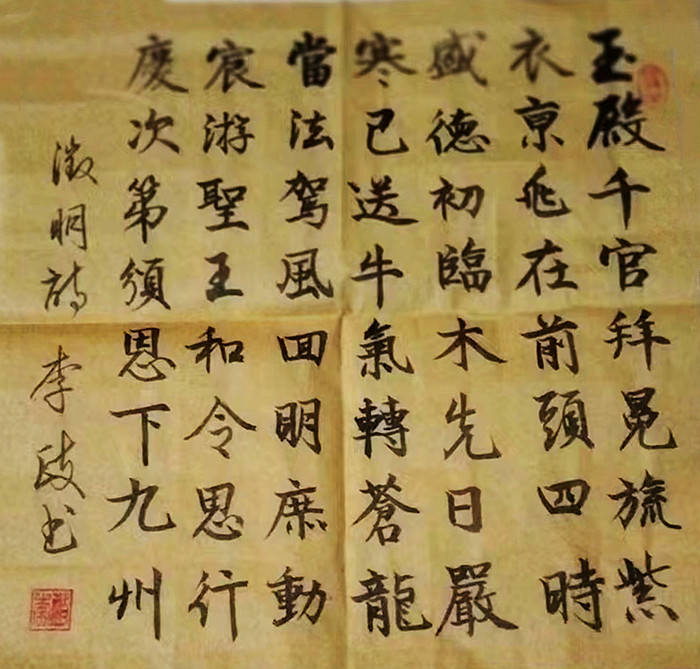 玉殿千官拜冕旒紫
衣亰兆在前頭四時
盛德初臨木先日嚴
寒已送牛氣轉蒼龍
當法駕風囬明庶動
宸游聖王和令思行
慶次第頒恩下九州
徵明詩 李歧书